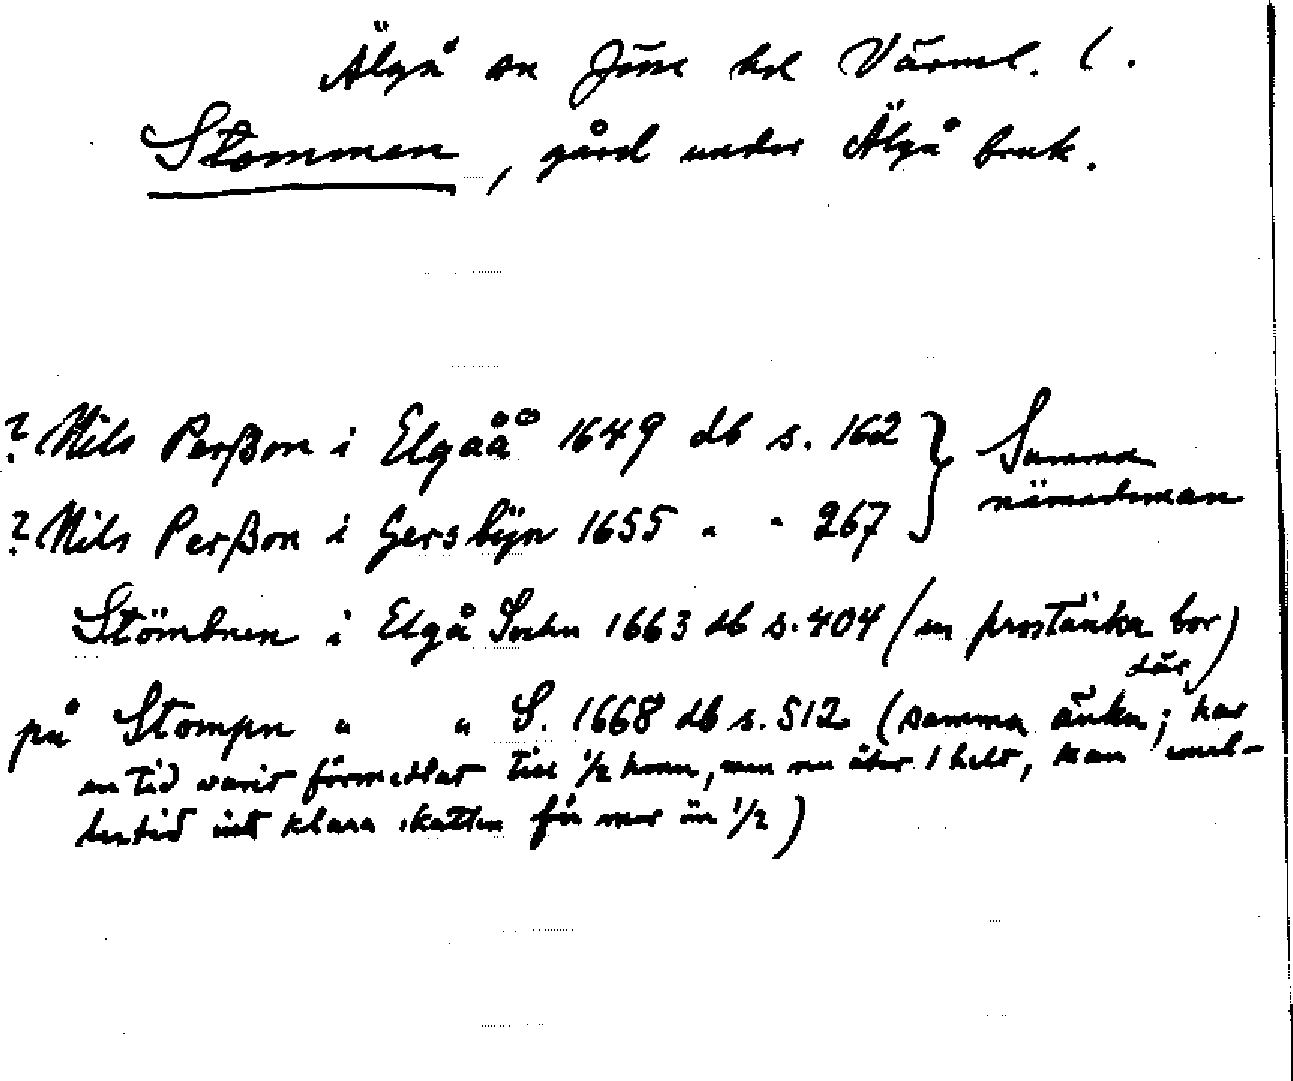 Älgå sn Jösse hd Värml. l.
Stommen, gård under Älgå bruk.
? Nils Perßon i Elgåå 1649 db s. 162 } Samma
nämndeman
? Nils Perßon i Gersbÿn 1655 " " 267
Stömbnen i Elgå Sochn 1663 db s. 404 (en prostänka bor
där)
på Stompn " " S. 1668 db s. 512 (samma änka; har
en tid varit förmedlat till 1/2 hemn, men nu åter 1 helt, kan
inte klara skatten för mer än 1/2)